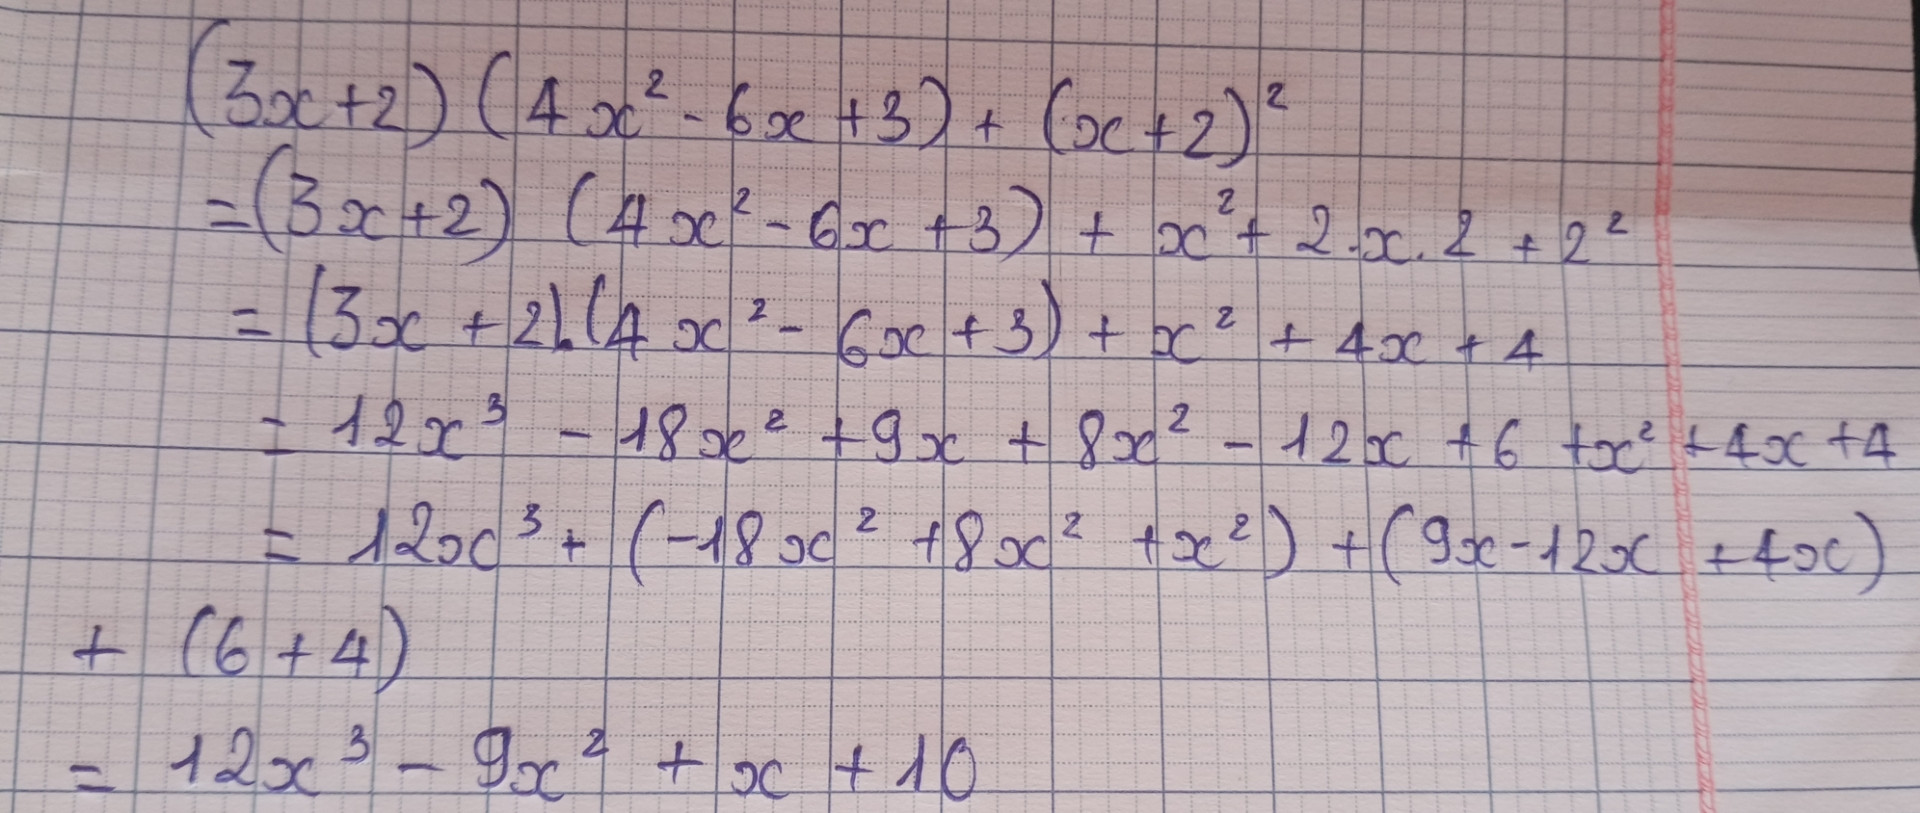 (3x+2) (4x² - 6x + 3) + (x+2)²
= (3x+2) (4x² - 6x + 3) + x² + 2.x.2 + 2²
= (3x + 2).(4x² - 6x + 3) + x² + 4x + 4
= 12x³ - 18x² + 9x + 8x² - 12x + 6 + x² + 4x + 4
= 12x³ + (-18x² + 8x² + x²) + (9x - 12x + 4x)
+ (6 + 4)
= 12x³ - 9x² + x + 10